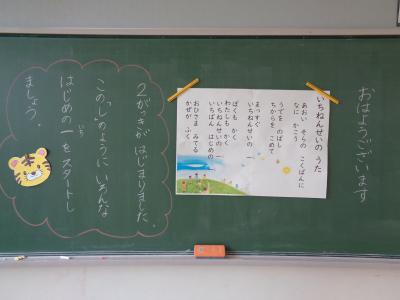 おはようございます
いちねんせいの うた
あおい そらの こくばんに
なに かこう
うでを のばし
ちからを こめて
まっすぐ
いちねんせいの 一
ぼくも かく
わたしも かく
いちねんせいの 一
いちばん はじめの 一
おひさま みてる
かぜが ふく
2がっきが はじまりました。
この「し」のように いろんな
はじめの 一(いち)を スタートし
ましょう。